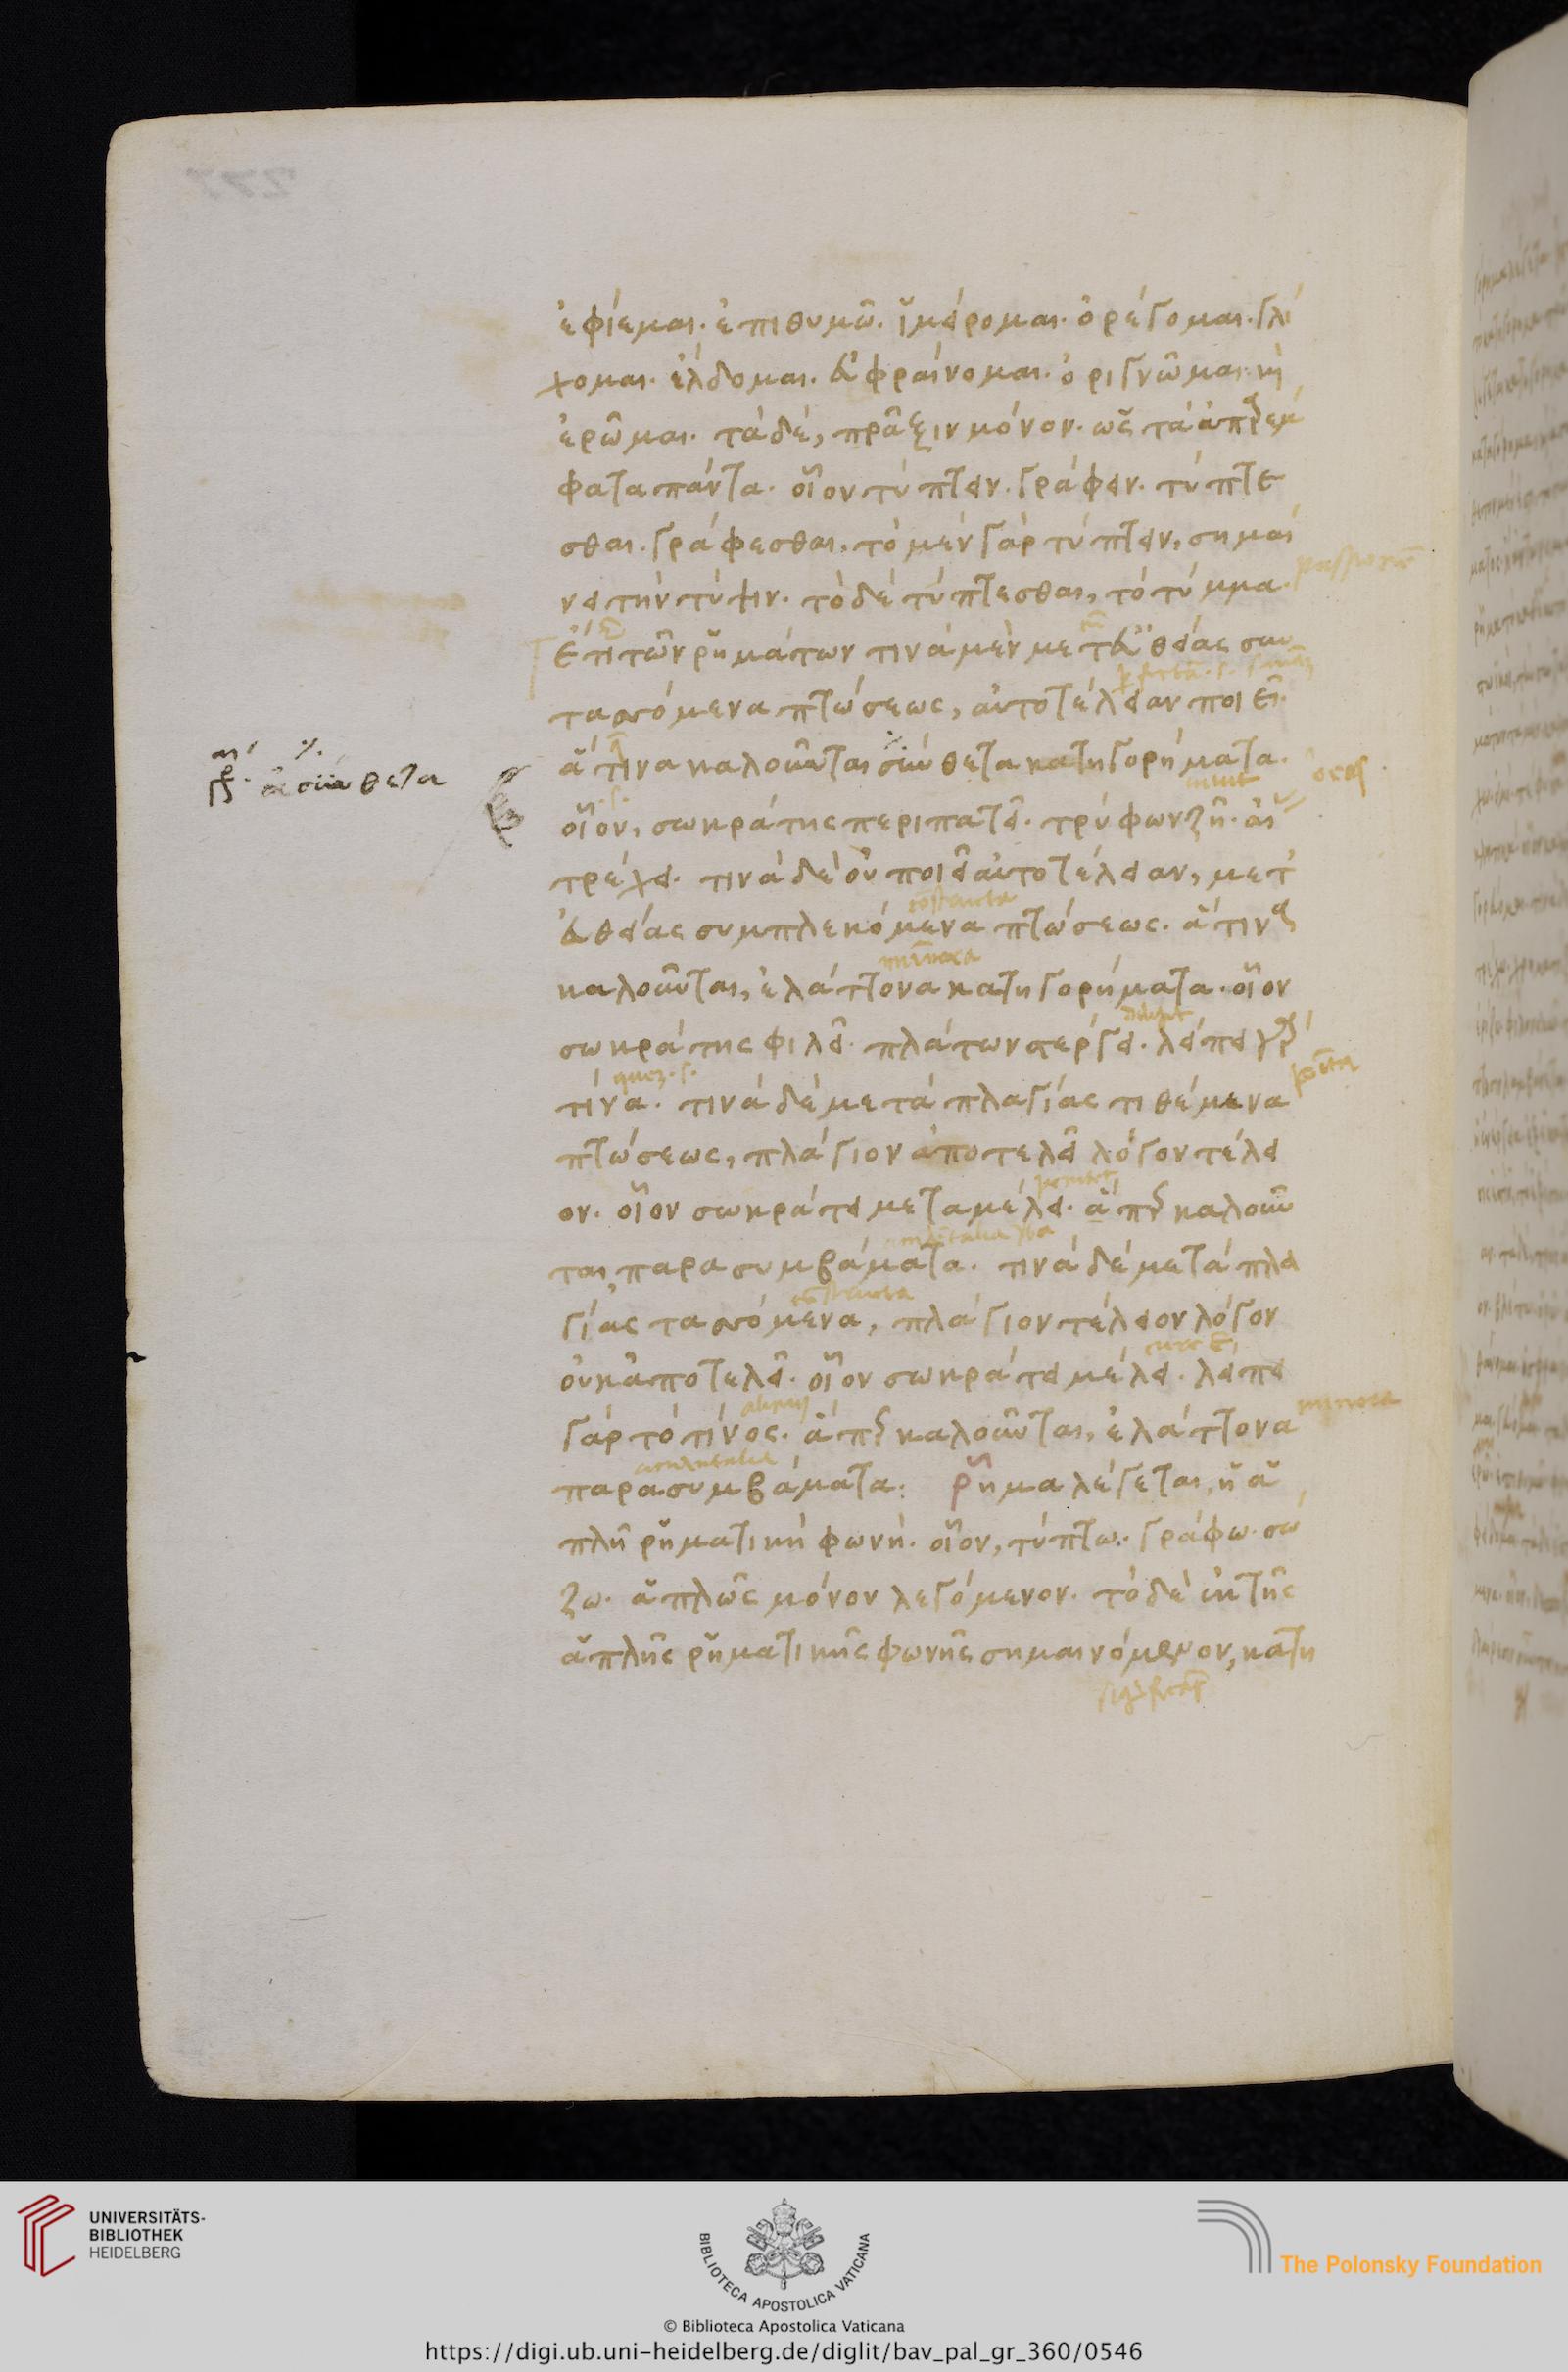 ἐφίεμαι. ἐπιθυμῶ. ἵμείρομαι. ὀρέγομαι. γλί
χομαι. ἔλδομαι. εὐφραίνομαι. ὀριγνῶμαι. κỳ
ἐρῶμαι. τὰ δὲ, πρᾶξιν μόνον. ὡς τὰ ἀπαρέμ
φατα πάντα. οἷον τύπτειν. γράφειν. τύπτε
σθαι. γράφεσθαι. τὸ μὲν γὰρ τύπτειν, σημαί
νει τὴν τύψιν. τὸ δὲ τύπτεσθαι, τὸ τύμμα.
ἔτι τῶν ῥημάτων τινὰ μὲν μετ' εὐθείας συν
ταττόμενα πτώσεως, αὐτοτέλειαν ποιεῖ.
ἅτινα καλοῦνται σύνθετα κατηγορήματα.
γρ. ἀσύνθετα
οἷον, σωκράτης περιπατεῖ. τρύφων ζῇ.
τρέχει. τινὰ δὲ οὐ ποιεῖ αὐτοτέλειαν, μετ'
εὐθείας συμπλεκόμενα πτώσεως. ἅτινα
καλοῦνται, ἐλάττονα κατηγορήματα. οἷον
σωκράτης φιλεῖ. πλάτων στέργει. λείπει γὰρ
τίνα. τινὰ δὲ μετὰ πλαγίας τιθέμενα
πτώσεως, πλάγιον ἀποτελεῖ λόγον τέλει
ον. οἷον σωκράτει μεταμέλει. ἅπερ καλοῦν
ται παρασυμβάματα. τινὰ δὲ μετὰ πλα
γίας ταττόμενα, πλάγιον τέλειον λόγον
οὐκ ἀποτελεῖ. οἷον σωκράτει μέλει. λείπει
γὰρ τὸ τίνος. ἅπερ καλοῦνται, ἐλάττονα
minora
παρασυμβάματα: ῥῆμα λέγεται, ἡ ἁ
πλῆ ῥηματικὴ φωνή. οἷον, τύπτω. γράφω. σώ
ζω. ἁπλῶς μόνον λεγόμενον. τὸ δὲ ἐκ τῆς
ἁπλῆς ῥηματικῆς φωνῆς σημαινόμενον, κατη
UNIVERSITÄTS-
BIBLIOTHEK
HEIDELBERG
BIBLIOTECA APOSTOLICA VATICANA
The Polonsky Foundation
© Biblioteca Apostolica Vaticana
https://digi.ub.uni-heidelberg.de/diglit/bav_pal_gr_360/0546